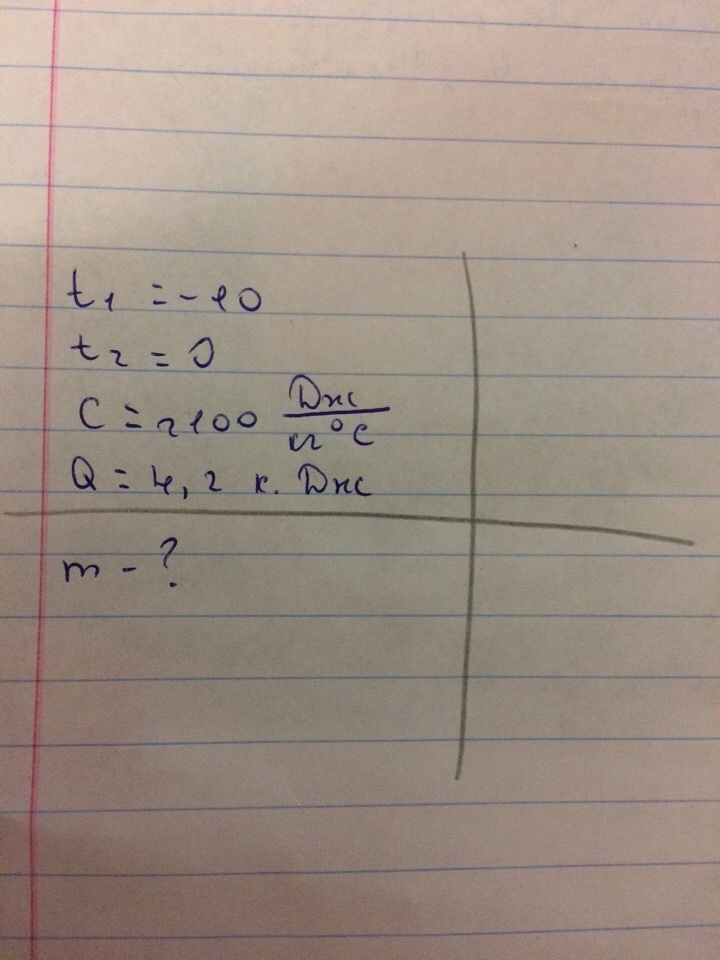 t₁ = -10
t₂ = 0
C = 2100 Дж/кг°C
Q = 4,2 к. Дж
m - ?